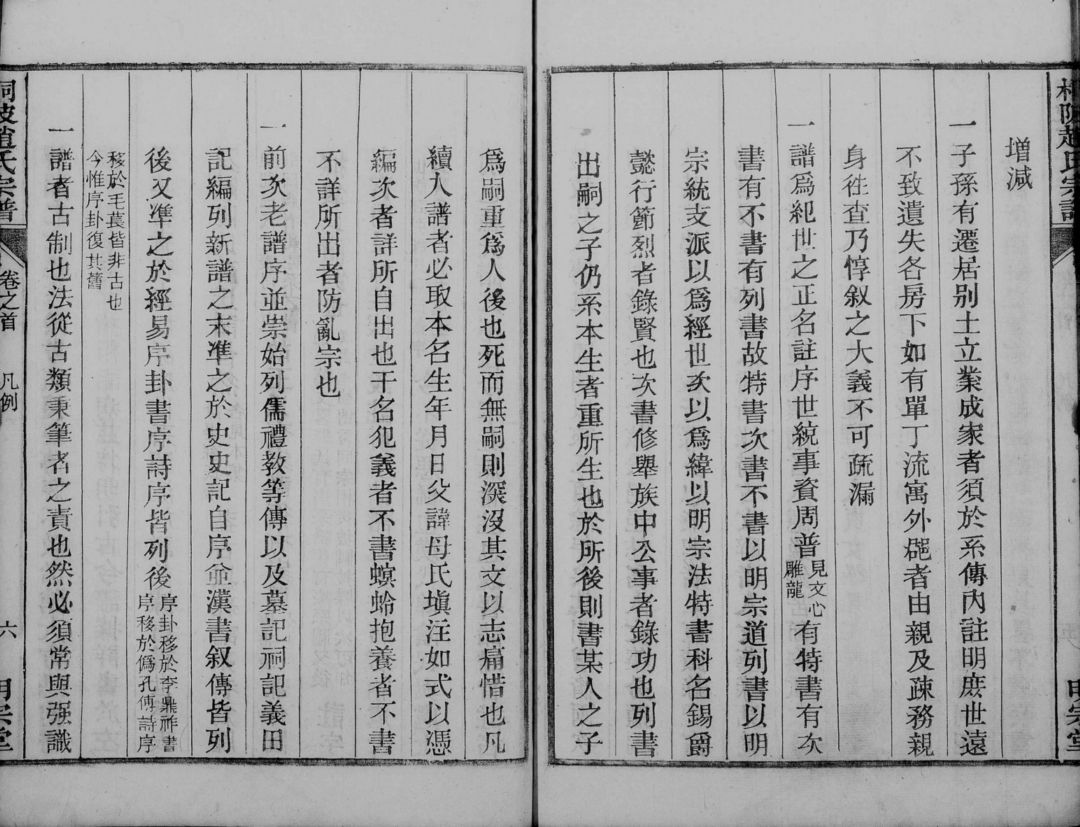 增減
一子孫有遷居别土立業成家者須於系傳內註明庶世遠
不致遺失各房下如有單丁流寓外𨖴者由親及疎務親
身徃查乃惇叙之大義不可疏漏
一譜爲紀世之正名註序世統事資周普見文心雕龍有特書有次
書有不書有列書故特書次書不書以明宗道列書以明
宗統支派以爲經世次以爲緯以明宗法特書科名錫爵
懿行節烈者錄賢也次書修舉族中公事者錄功也列書
出嗣之子仍系本生者重所生也於所後則書某人之子
爲嗣重爲人後也死而無嗣則深沒其文以志痛惜也凡
續人譜者必取本名生年月日父諱母氏塡注如式以憑
編次者詳所自出也干名犯義者不書螟蛉抱養者不書
不詳所出者防亂宗也
一前次老譜序並崇始列儒禮教等傳以及墓記祠記義田
記編列新譜之末準之於史史記自序並漢書叙傳皆列
後又準之於經易序卦書序詩序皆列後序卦移於李鼎祚書序移於僞孔傳詩序
移於毛萇皆非古也今惟序卦復其舊
一譜者古制也法從古類秉筆者之責也然必須常與强識
桐陂趙氏宗譜
卷之首
凡例
六
明宗堂